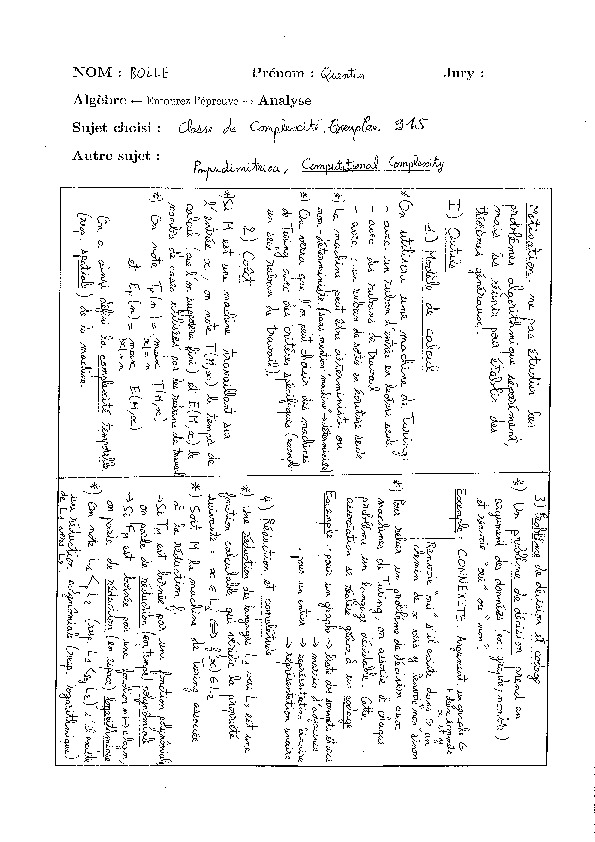 NOM : BOLLE Prénom : Quentin Jury :
Algèbre ← Entourez l'épreuve → Analyse
Sujet choisi : Classe de Complexité. Exemples. 915
Autre sujet :
Papadimitriou, Computational Complexity
Motivation : ne pas étudier les
problèmes algorithmique séparément,
mais les réunir pour établir des
théorèmes généraux.
I) Outils
1) Modèle de calcul
*) On utilisera une machine de Turing :
- avec un ruban d'entrée en lecture seule
- avec des rubans de travail
- avec un ruban de sortie en écriture seule
*) La machine peut être déterministe ou
non-déterministe (sans mention "machine" = déterministe)
*) On verra que l'on peut choisir des machines
de Turing avec des critères spécifiques (exemple :
un seul ruban de travail).
2) Coût
*) Si M est une machine travaillant sur
l'entrée x, on note T(M,x) le temps de
calcul (que l'on suppose fini) et E(M,x) le
nombre de cases utilisées par les rubans de travail
*) On note T_M(n) = max T(M,x)
|x|=n
et E_M(n) = max E(M,x)
|x|=n
On a ainsi défini la complexité temporelle
(resp. spatiale) de la machine.
3) Problème de décision et codage
*) Un problème de décision prend en
argument des données (ex : graphe, nombre)
et renvoie "oui" ou "non".
Exemple : CONNEXITE : prenant un graphe G
x et y
Renvoie "oui" s'il existe dans G un
chemin de x vers y, renvoie non sinon
*) Pour relier un problème de décision aux
machines de Turing, on associe à chaque
problème un langage décidable. Cette
association se réalise grâce à un codage
Exemple : pour un graphe → liste des sommets et arcs
→ matrice d'adjacence
pour un entier → représentation binaire
→ représentation unaire
4) Réduction et complétude
*) Une réduction de langages L1 vers L2 est une
fonction calculable qui vérifie la propriété
suivante : x ∈ L1 ⟺ f(x) ∈ L2
*) Soit M la machine de Turing associée
à la réduction f.
→ Si T_M est bornée par une fonction polynomiale
on parle de réduction (en temps) polynomiale
→ Si E_M est bornée par une fonction n ↦ c log n,
on parle de réduction (en espace) logarithmique
*) On note L1 <p L2 (resp. L1 <log L2) s'il existe
une réduction polynomiale (resp. logarithmique)
de L1 vers L2.